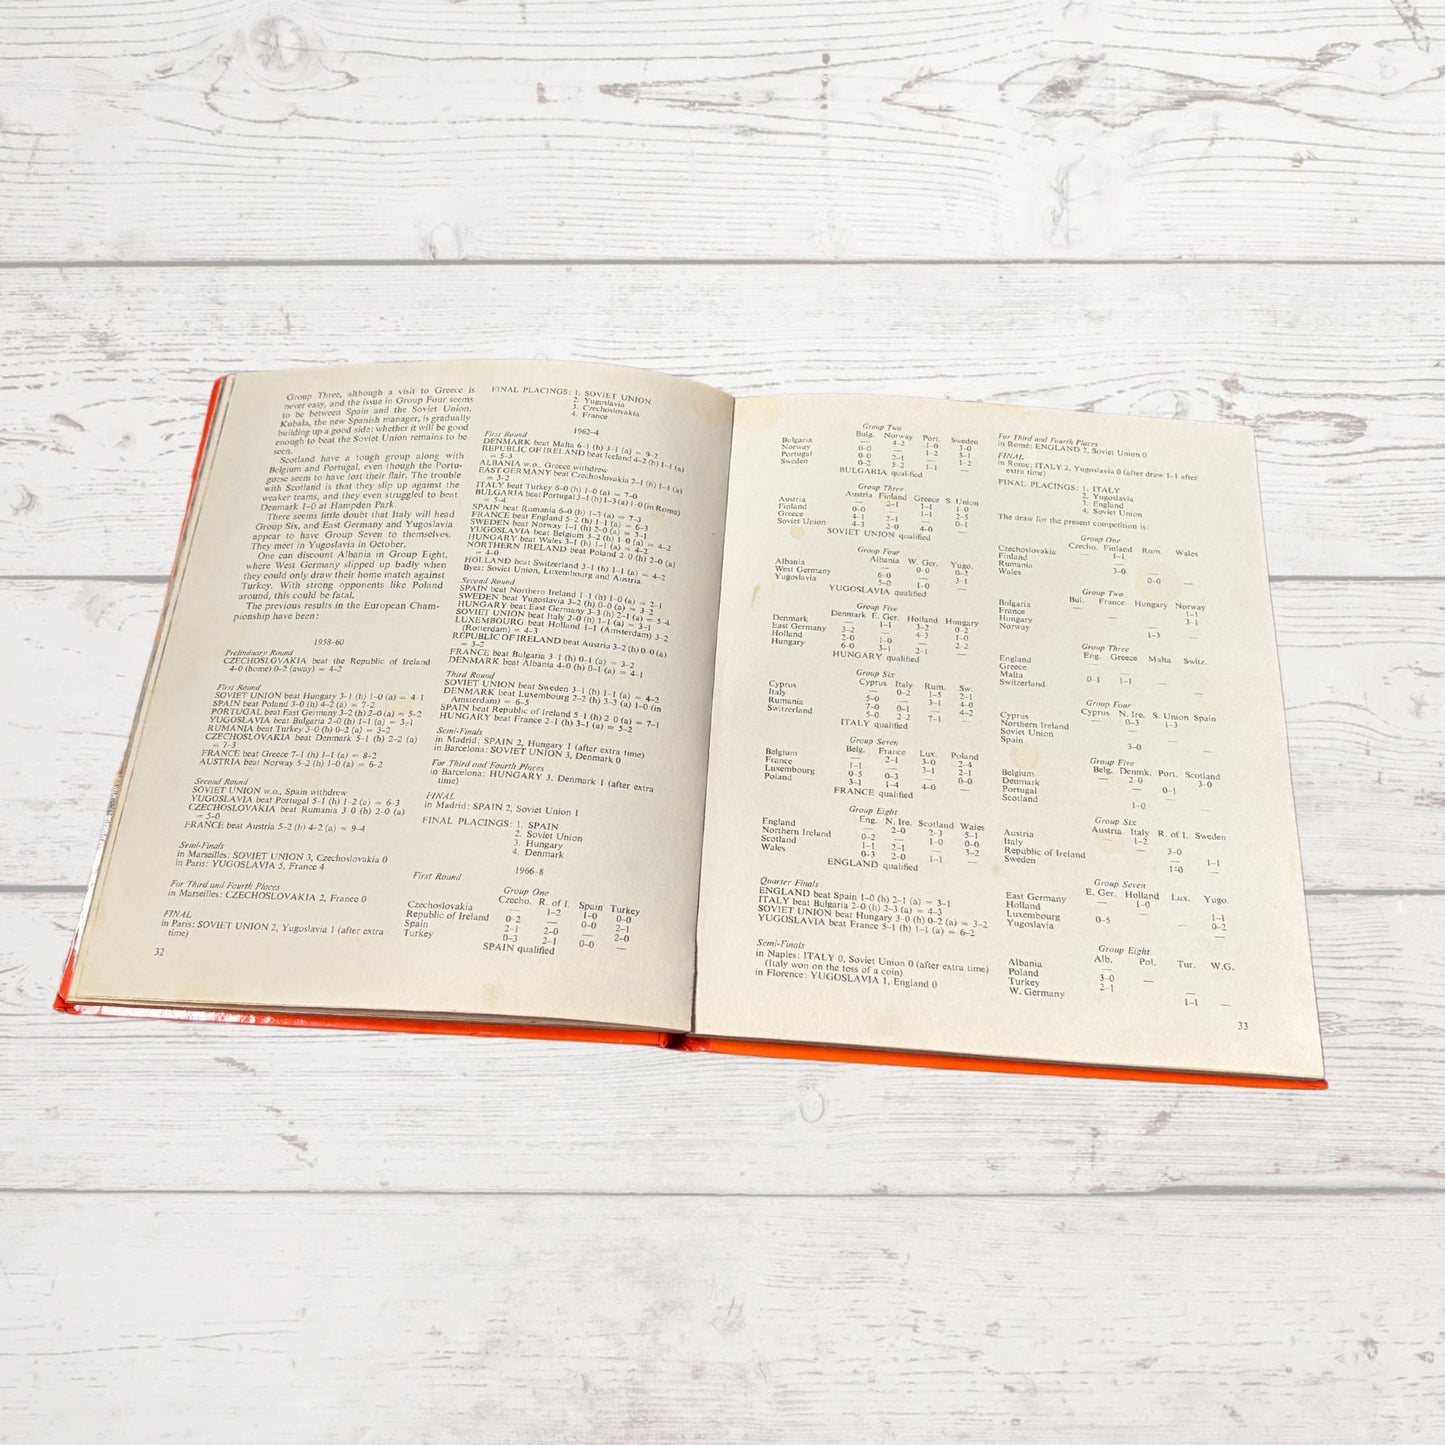 Group Three, although a visit to Greece is
never easy, and the issue in Group Four seems
to be between Spain and the Soviet Union.
Kubala, the new Spanish manager, is gradually
building up a good side; whether it will be good
enough to beat the Soviet Union remains to be
seen.
Scotland have a tough group along with
Belgium and Portugal, even though the Portu-
guese seem to have lost their flair. The trouble
with Scotland is that they slip up against the
weaker teams, and they even struggled to beat
Denmark 1–0 at Hampden Park.
There seems little doubt that Italy will head
Group Six, and East Germany and Yugoslavia
appear to have Group Seven to themselves.
They meet in Yugoslavia in October.
One can discount Albania in Group Eight,
where West Germany slipped up badly when
they could only draw their home match against
Turkey. With strong opponents like Poland
around, this could be fatal.
The previous results in the European Cham-
pionship have been:
1958–60
Preliminary Round
CZECHOSLOVAKIA beat the Republic of Ireland
4–0 (home) 0–2 (away) = 4–2
First Round
SOVIET UNION beat Hungary 3–1 (h) 1–0 (a) = 4–1
SPAIN beat Poland 3–0 (h) 4–2 (a) = 7–2
PORTUGAL beat East Germany 3–2 (h) 2–0 (a) = 5–2
YUGOSLAVIA beat Bulgaria 2–0 (h) 1–1 (a) = 3–1
RUMANIA beat Turkey 3–0 (h) 0–2 (a) = 3–2
CZECHOSLOVAKIA beat Denmark 5–1 (h) 2–2 (a)
= 7–3
FRANCE beat Greece 7–1 (h) 1–1 (a) = 8–2
AUSTRIA beat Norway 5–2 (h) 1–0 (a) = 6–2
Second Round
SOVIET UNION w.o., Spain withdrew
YUGOSLAVIA beat Portugal 5–1 (h) 1–2 (a) = 6–3
CZECHOSLOVAKIA beat Rumania 3–0 (h) 2–0 (a)
= 5–0
FRANCE beat Austria 5–2 (h) 4–2 (a) = 9–4
Semi-Finals
in Marseilles: SOVIET UNION 3, Czechoslovakia 0
in Paris: YUGOSLAVIA 5, France 4
For Third and Fourth Places
in Marseilles: CZECHOSLOVAKIA 2, France 0
FINAL
in Paris: SOVIET UNION 2, Yugoslavia 1 (after extra
time)
32
FINAL PLACINGS: 1. SOVIET UNION
2. Yugoslavia
3. Czechoslovakia
4. France
1962–4
First Round
DENMARK beat Malta 6–1 (h) 3–1 (a) = 9–2
REPUBLIC OF IRELAND beat Iceland 4–2 (h) 1–1 (a)
= 5–3
ALBANIA w.o., Greece withdrew
EAST GERMANY beat Czechoslovakia 2–1 (h) 1–1 (a)
= 3–2
ITALY beat Turkey 6–0 (h) 1–0 (a) = 7–0
BULGARIA beat Portugal 3–1 (h) 1–3 (a) 1–0 (in Rome)
= 5–4
SPAIN beat Rumania 6–0 (h) 1–3 (a) = 7–3
FRANCE beat England 5–2 (h) 1–1 (a) = 6–3
SWEDEN beat Norway 1–1 (h) 2–0 (a) = 3–1
YUGOSLAVIA beat Belgium 3–2 (h) 1–0 (a) = 4–2
HUNGARY beat Wales 3–1 (h) 1–1 (a) = 4–2
NORTHERN IRELAND beat Poland 2–0 (h) 2–0 (a)
= 4–0
HOLLAND beat Switzerland 3–1 (h) 1–1 (a) = 4–2
Byes: Soviet Union, Luxembourg and Austria
Second Round
SPAIN beat Northern Ireland 1–1 (h) 1–0 (a) = 2–1
SWEDEN beat Yugoslavia 3–2 (h) 0–0 (a) = 3–2
HUNGARY beat East Germany 3–3 (h) 2–1 (a) = 5–4
SOVIET UNION beat Italy 2–0 (h) 1–1 (a) = 3–1
LUXEMBOURG beat Holland 1–1 (Amsterdam) 3–2
(Rotterdam) = 4–3
REPUBLIC OF IRELAND beat Austria 3–2 (h) 0–0 (a)
= 3–2
FRANCE beat Bulgaria 3–1 (h) 0–1 (a) = 3–2
DENMARK beat Albania 4–0 (h) 0–1 (a) = 4–1
Third Round
SOVIET UNION beat Sweden 3–1 (h) 1–1 (a) = 4–2
DENMARK beat Luxembourg 2–2 (h) 3–3 (a) 1–0 (in
Amsterdam) = 6–5
SPAIN beat Republic of Ireland 5–1 (h) 2–0 (a) = 7–1
HUNGARY beat France 2–1 (h) 3–1 (a) = 5–2
Semi-Finals
in Madrid: SPAIN 2, Hungary 1 (after extra time)
in Barcelona: SOVIET UNION 3, Denmark 0
For Third and Fourth Places
in Barcelona: HUNGARY 3, Denmark 1 (after extra
time)
FINAL
in Madrid: SPAIN 2, Soviet Union 1
FINAL PLACINGS: 1. SPAIN
2. Soviet Union
3. Hungary
4. Denmark
1966–8
First Round
Group One
Czecho. R. of I. Spain Turkey
Czechoslovakia — 1–2 1–0 0–0
Republic of Ireland 0–2 — 0–0 2–1
Spain 2–1 2–0 — 2–0
Turkey 0–3 2–1 0–0 —
SPAIN qualified
Group Two
Bulg. Norway Port. Sweden
Bulgaria — 4–2 1–0 3–0
Norway 0–0 — 1–2 3–1
Portugal 0–0 2–1 — 1–2
Sweden 0–2 5–2 1–1 —
BULGARIA qualified
Group Three
Austria Finland Greece S. Union
Austria — 2–1 1–1 1–0
Finland 0–0 — 1–1 2–5
Greece 4–1 2–1 — 0–1
Soviet Union 4–3 2–0 4–0 —
SOVIET UNION qualified
Group Four
Albania W. Ger. Yugo.
Albania — 0–0 0–2
West Germany 6–0 — 3–1
Yugoslavia 5–0 1–0 —
YUGOSLAVIA qualified
Group Five
Denmark E. Ger. Holland Hungary
Denmark — 1–1 3–2 0–2
East Germany 3–2 — 4–3 1–0
Holland 2–0 1–0 — 2–2
Hungary 6–0 3–1 2–1 —
HUNGARY qualified
Group Six
Cyprus Italy Rum. Sw.
Cyprus — 0–2 1–5 2–1
Italy 5–0 — 3–1 4–0
Rumania 7–0 0–1 — 4–2
Switzerland 5–0 2–2 7–1 —
ITALY qualified
Group Seven
Belg. France Lux. Poland
Belgium — 2–1 3–0 2–4
France 1–1 — 3–1 2–1
Luxembourg 0–5 0–3 — 0–0
Poland 3–1 1–4 4–0 —
FRANCE qualified
Group Eight
Eng. N. Ire. Scotland Wales
England — 2–0 2–3 5–1
Northern Ireland 0–2 — 1–0 0–0
Scotland 1–1 2–1 — 3–2
Wales 0–3 2–0 1–1 —
ENGLAND qualified
Quarter Finals
ENGLAND beat Spain 1–0 (h) 2–1 (a) = 3–1
ITALY beat Bulgaria 2–0 (h) 2–3 (a) = 4–3
SOVIET UNION beat Hungary 3–0 (h) 0–2 (a) = 3–2
YUGOSLAVIA beat France 5–1 (h) 1–1 (a) = 6–2
Semi-Finals
in Naples: ITALY 0, Soviet Union 0 (after extra time)
(Italy won on the toss of a coin)
in Florence: YUGOSLAVIA 1, England 0
For Third and Fourth Places
in Rome: ENGLAND 2, Soviet Union 0
FINAL
in Rome: ITALY 2, Yugoslavia 0 (after draw 1–1 after
extra time)
FINAL PLACINGS: 1. ITALY
2. Yugoslavia
3. England
4. Soviet Union
The draw for the present competition is:
Group One
Czecho. Finland Rum. Wales
Czechoslovakia — 1–1
Finland —
Rumania 3–0 —
Wales 0–0 —
Group Two
Bul. France Hungary Norway
Bulgaria — 1–1
France — 3–1
Hungary —
Norway 1–3 —
Group Three
Eng. Greece Malta Switz.
England —
Greece —
Malta 0–1 1–1 —
Switzerland —
Group Four
Cyprus N. Ire. S. Union Spain
Cyprus — 0–3 1–3
Northern Ireland —
Soviet Union —
Spain 3–0 —
Group Five
Belg. Denmk. Port. Scotland
Belgium — 2–0 3–0
Denmark — 0–1
Portugal —
Scotland 1–0 —
Group Six
Austria Italy R. of I. Sweden
Austria — 1–2
Italy — 3–0
Republic of Ireland — 1–1
Sweden 1–0 —
Group Seven
E. Ger. Holland Lux. Yugo.
East Germany — 1–0
Holland — 1–1
Luxembourg 0–5 — 0–2
Yugoslavia —
Group Eight
Alb. Pol. Tur. W.G.
Albania —
Poland 3–0 —
Turkey 2–1 —
W. Germany 1–1 —
33